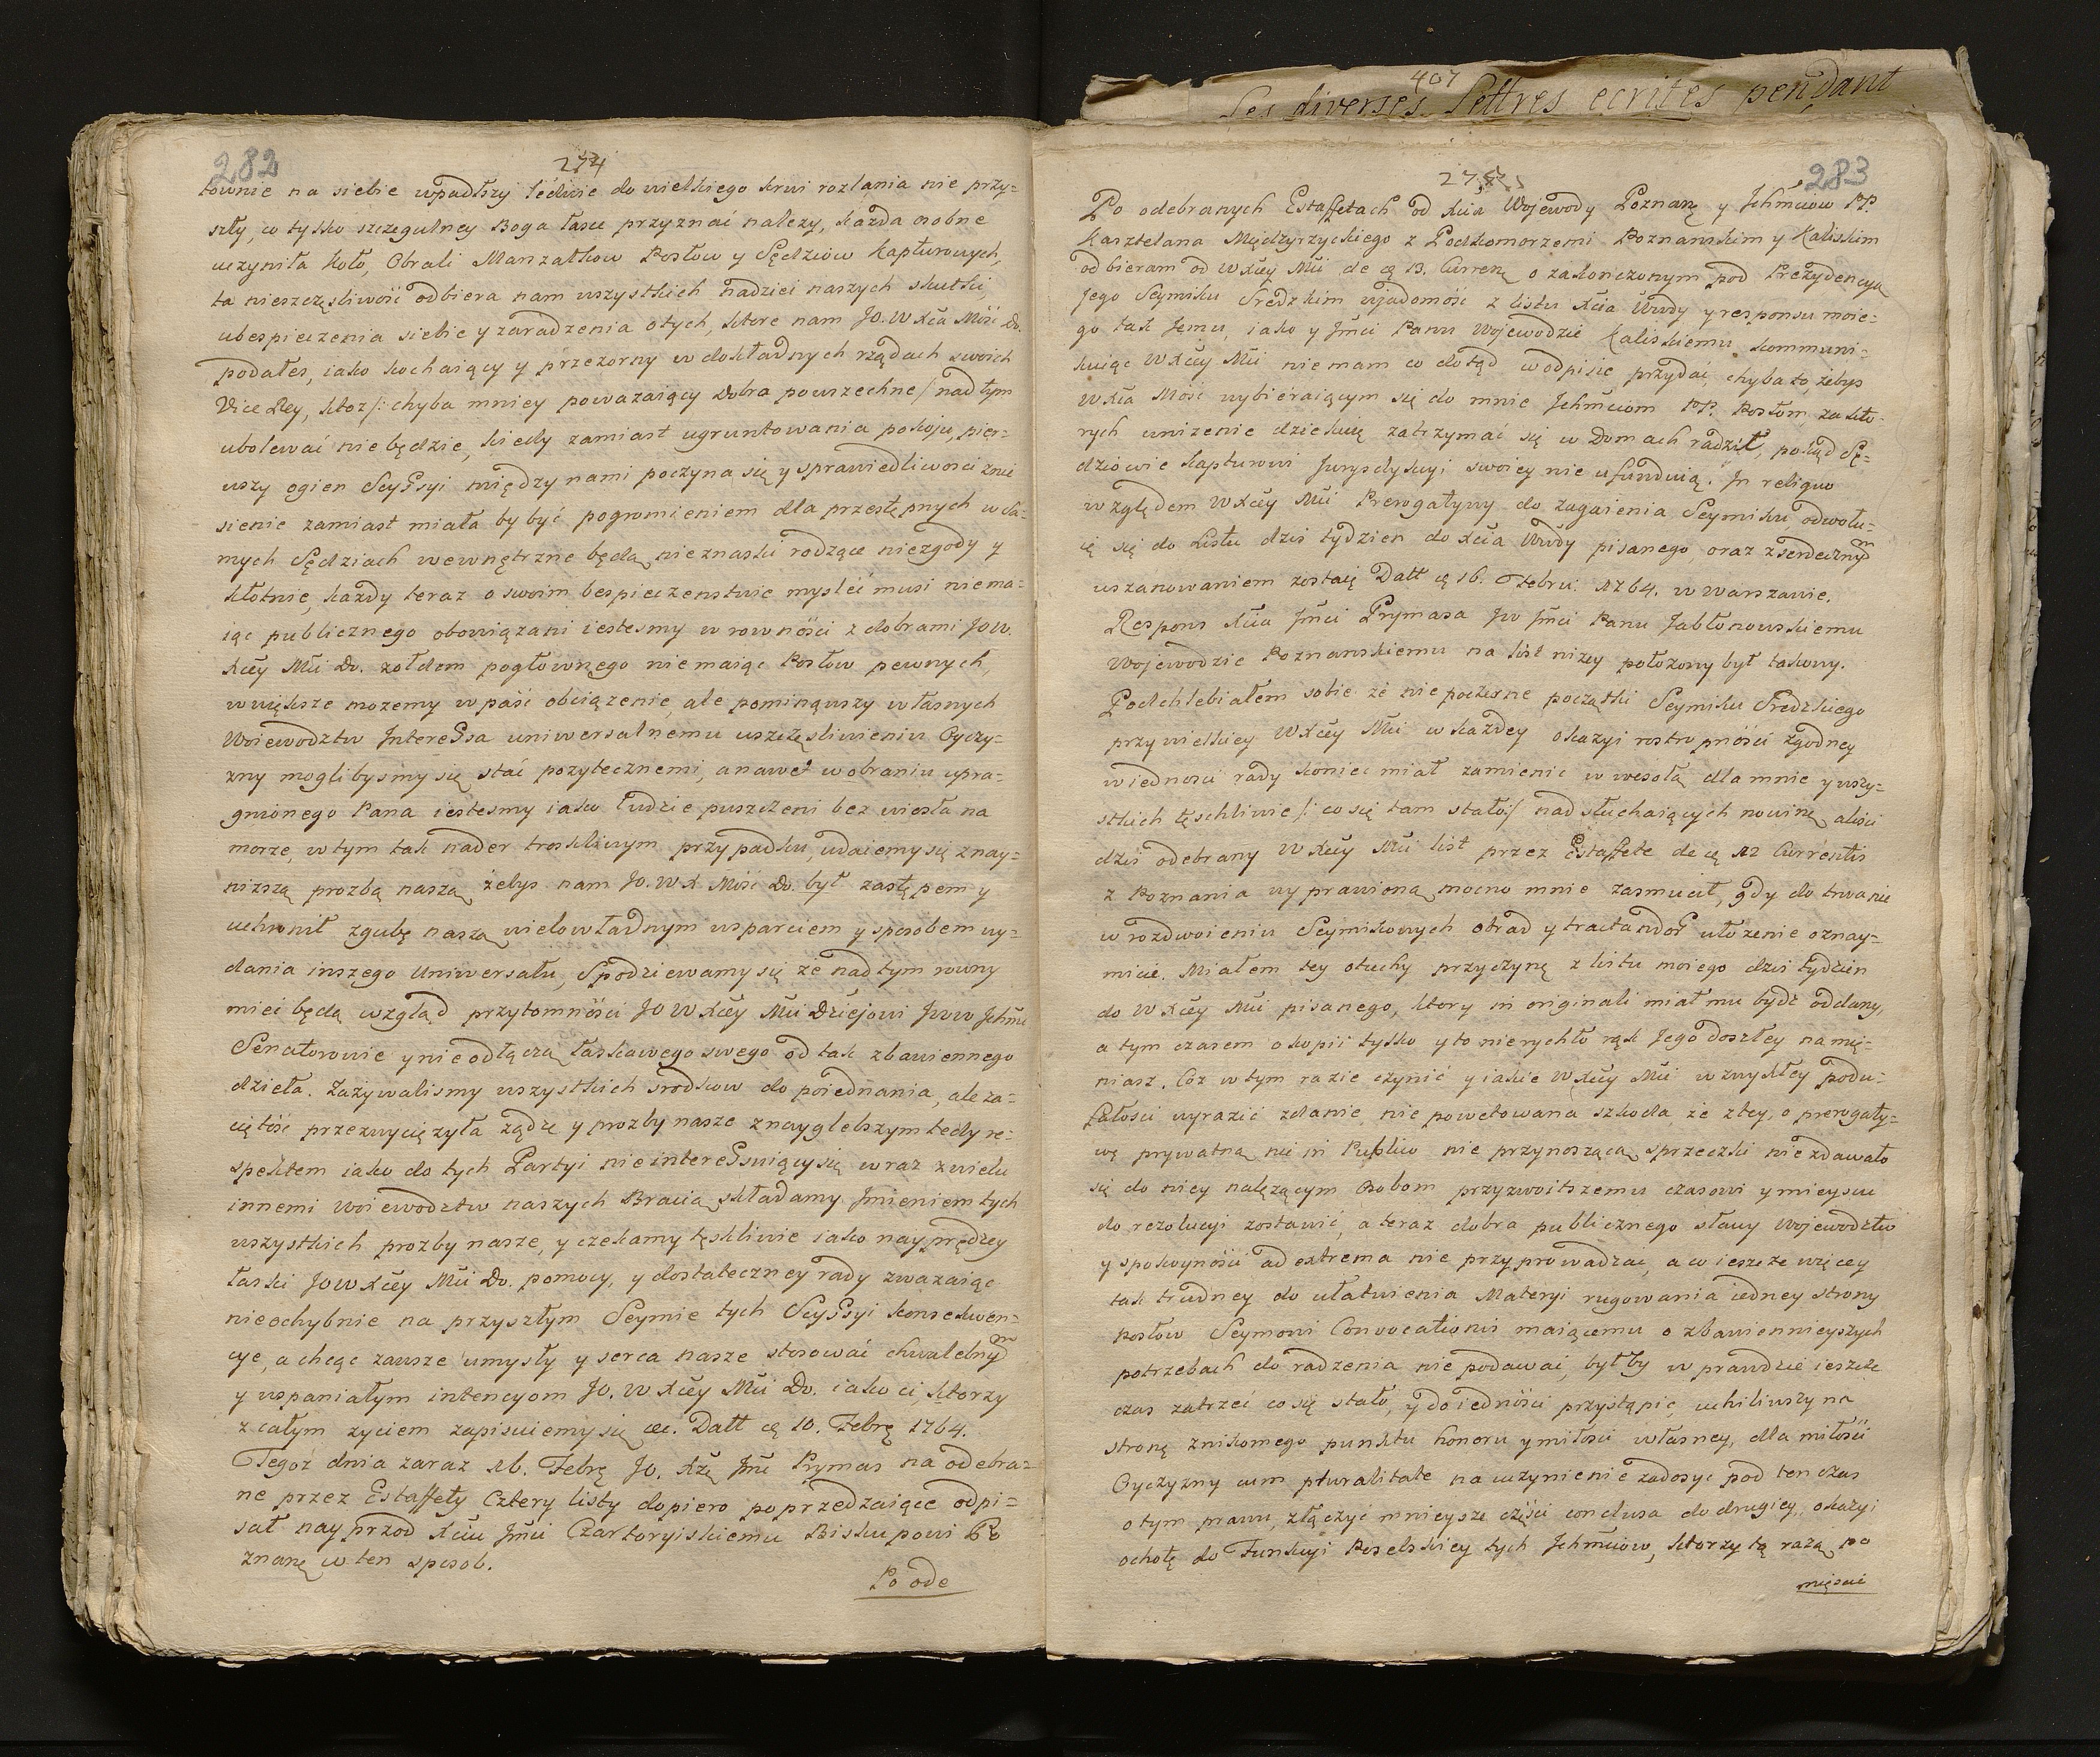 282
274
townie na siebie wpadłszy ledwie do wielkiego krwi rozlania nie przy=
szły, co tylko szczegulney Boga łasce przyznać nalezy, kazda osobne
uczyniła koło, Obrali Marszałkow Posłow y Sędziow Kapturowych,
ta nieszczęsliwość odbiera nam wszystkich nadziei naszych skutki,
ubespieczenia siebie y zaradzenia o tych, ktore nam JO. W Xcia Mość Do.
podałes, iako kochaiący y przezorny w dokładnych rządach swoich
Vice Rey, ktoz /: chyba mniey powazaiący Dobra powszechne / nad tym
ubolewać nie będzie, kiedy zamiast ugruntowania pokoju, pier=
wszy ogien Scyssyi między nami poczyna się y sprawiedliwosci znie
sienie zamiast miała by być pogromieniem dla przestępnych w sa=
mych Sędziach wewnętrzne będą nieznaski rodzące niezgody y
kłotnie, kazdy teraz o swoim bespieczenstwie mysleć musi nie ma=
iąc publicznego obowiązani iestesmy w rownosci z dobrami JOW.
Xcey Mci Do. zołdem pogłownego nie maiąc Posłow pewnych,
w większe mozemy wpaść obciązenie, ale pominąwszy własnych
Woiewodztw Interessa uniwersalnemu uszczęsliwieniu Oyczy=
zny moglibysmy się stać pozytecznemi, a nawet w obraniu upra=
gnionego Pana iestesmy iako ludzie puszczeni bez wiosła na
morze, w tym tak nader troskliwym przypadku, udaiemy się z nay=
nizszą prozbą naszą zebys nam JO. W X Mość Do. był zastępem y
uchronił zgubę naszą wielowładnym wsparciem y sposobem wy=
dania inszego Uniwersału, Spodziewamy się ze nad tym rowny
mieć będą wzgląd przytomnosci JO W Xcey Mci Dziejowi JWW Jchmc
Senatorowie y nie odłączą łaskawego swego od tak zbawiennego
dzieła. Zazywalismy wszystkich srodkow do poiednania, ale za=
ciętość przezwycięzyła ządze y prozby nasze z nayglebszym tedy re=
spektem iako do tych Partyi nie interessuiący się wraz z wielu
innemi Woiewodztw naszych Bracią składamy Jmieniem tych
wszystkich prozby nasze, y czekamy tęskliwie iako nayprędzey
łaski JOW Xcey Mci Do. pomocy, y dostateczney rady zwazaiąc
nieochybnie na przyszłym Seymie tych Scyssyi konsekwen=
cye, a chcąc zawsze umysły y serca nasze stosować chwalebnym
y wspaniałym intencyom JO. W Xcey Mci Do. iako ci, ktorzy
z całym zyciem zapisuiemy się etc. Datt ą 10. Febrę 1764.
Tegoz dnia zaraz 16. Febrę JO. Xzę Jmc Prymas na odebra=
ne przez Estaffety Cztery listy dopiero poprzedzaiące odpi=
sał nayprzod Xciu Jmci Czartoryiskiemu Biskupowi Po
znanę w ten sposob.
Po ode
407
Les diverses Lettres ecrites pendant
283
Po odebranych Estaffetach od Xcia Wojewody Poznanę y Jchmciow PP.
Kasztelana Międzyrzyckiego z Podkomorzemi Poznanskim y Kaliskim
odbieram od W Xcey Mci de ą 13. Currenę o zakonczonym pod Prezydencyą
Jego Seymiku Sredzkim wjadomość z listu Xcia Wwdy y responsu moie=
go tak Jemu, iako y Jmci Panu Wojewodzie Kaliskiemu kommuni=
kuiąc W Xcey Mci nie mam co dotąd w odpisie przydać, chyba to, zebys
W Xcia Mość wybieraiącym się do mnie Jchmciom PP. Posłom, za kto=
rych unizenie dziekuię zatrzymać się w Domach radził, pokąd Sę=
dziowie kapturowi Jurysdykcyi swoiey nie ufunduią. Jn reliquo
względem W Xcey Mci Prerogatywy do zagaienia Seymiku, odwołu=
ię się do Listu dzis tydzien do Xcia Wwdy pisanego, oraz z serdecznym
uszanowaniem zostaię Datt ą 16. Febru: 1764. w Warszawie.
Respons Xcia Jmci Prymasa JW Jmci Panu Jabłonowskiemu
Wojewodzie Poznanskiemu na list nizey połozony był takowy.
Podchlebiałem sobie ze niepoczesne początki Seymiku Sredzkiego
przy wielkiey W Xcey Mci w kazdey okazyi rostropności zgodney
w iednosci rady koniec miał zamienić w wesołą dla mnie y wszy=
stkich tęschliwie /: co się tam stało :/ nad słuchaiących nowinę, aliści
dziś odebrany W Xcey Mci list przez Estaffetę de ą 12 Currentis
z Poznania wyprawioną mocno mnie zasmucił, gdy do trwanie
w rozdwoieniu Seymikowych obrad y tractandor ułozenie oznay=
mię. Miałem tey otuchy przyczynę z listu moiego dzis tydzien
do W Xcey Mci pisanego, ktory in originali miał mu bydz oddany,
a tym czasem o kopii tylko y to nierychło rąk Jego doszłey namię=
niasz. Coz w tym razie czynić y iakie W Xcey Mci w zwykłey podu=
fałosci wyrazić zdanie, nie powetowana szkoda, ze z tey, o prerogaty=
wę prywatną nic in Publico nie przynoszącą sprzeczki nie zdawało
się do niey nalezącym Osobom przyzwoitszemu czasowi y mieyscu
do rezolucyi zostawić, a teraz dobra publicznego sławy Wojewodztw
y spokoyności ad extrema nie przyprowadzać, a co ieszcze więcey
tak trudney do ułatwienia Materyi rugowania iedney strony
Posłow Seymowi Convocationis maiącemu o zbawiennieyszych
potrzebach do radzenia nie podawać, był by w prawdzie ieszcze
czas zatrzeć co się stało, y do iedności przystąpić, uchiliwszy na
stronę znikomego punktu honoru y miłosci własney, dla miłości
Oyczyzny cum pluralitate na uczynienie zadosyc pod ten czas
o tym prawu, złączyć mnieysze części conclusa do drugiey okazyi
ochotę do Funkcyi Poselskiey tych Jchmciow, ktorzy tą razą po
mięscić